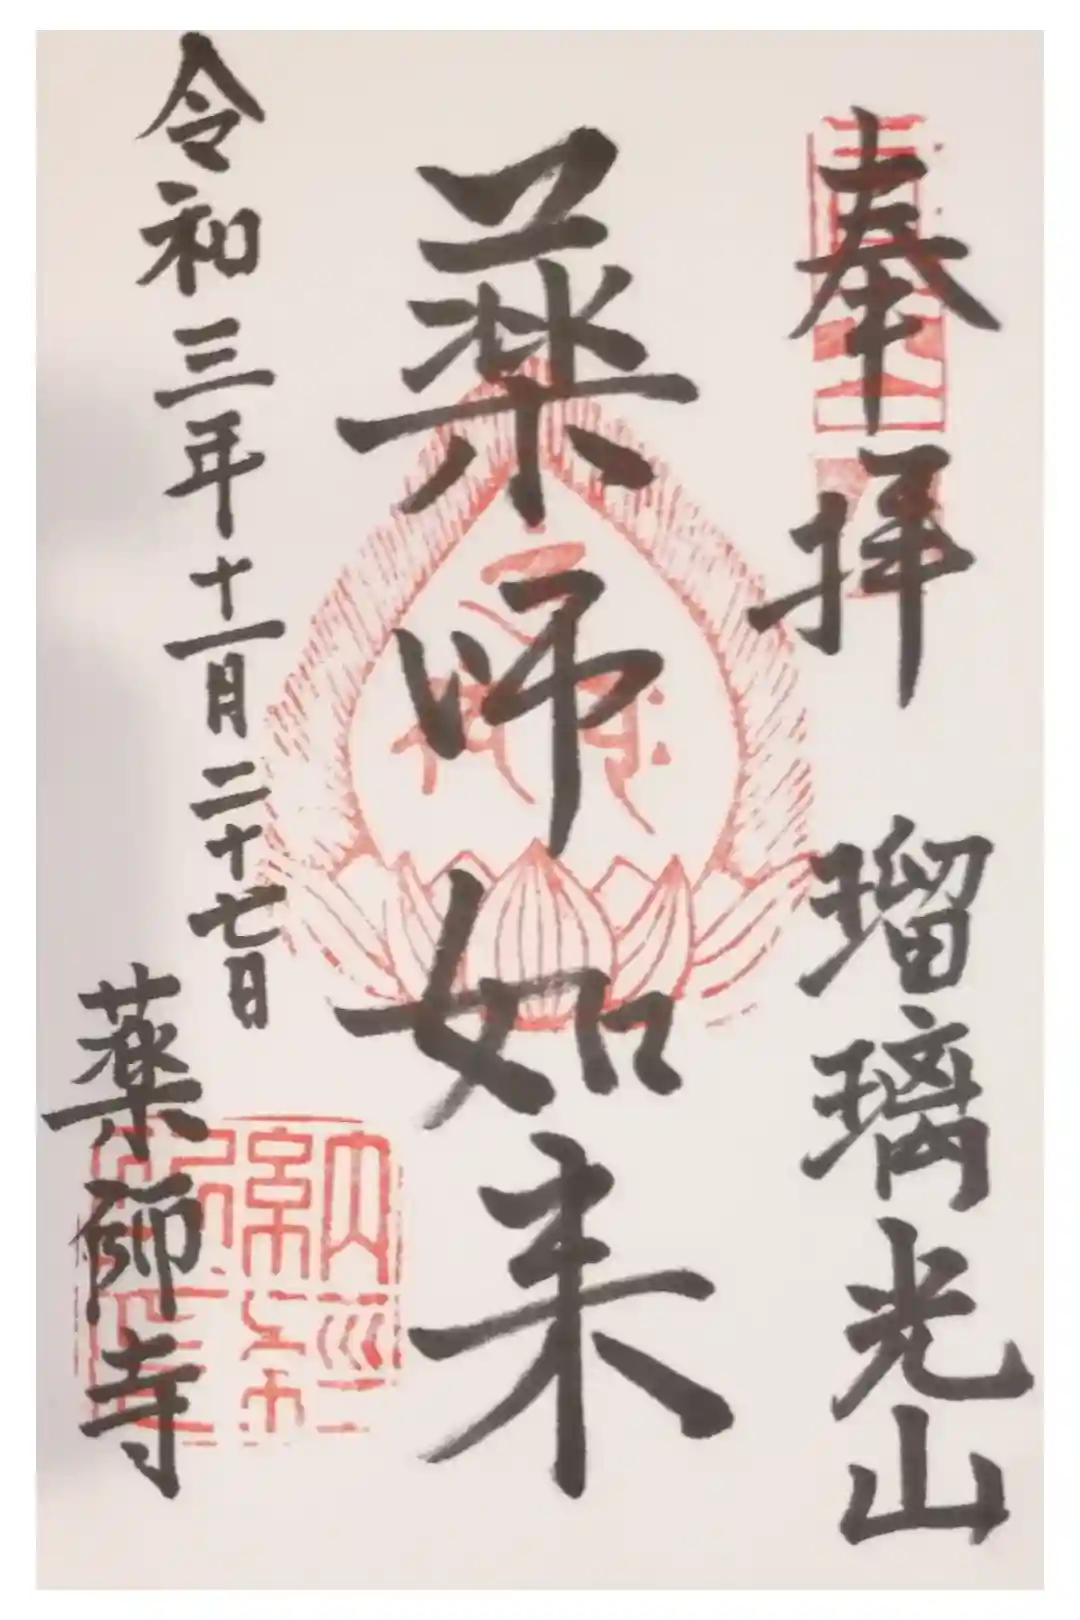 奉拝 瑠璃光山
薬師如来
令和三年十一月二十七日
薬師寺